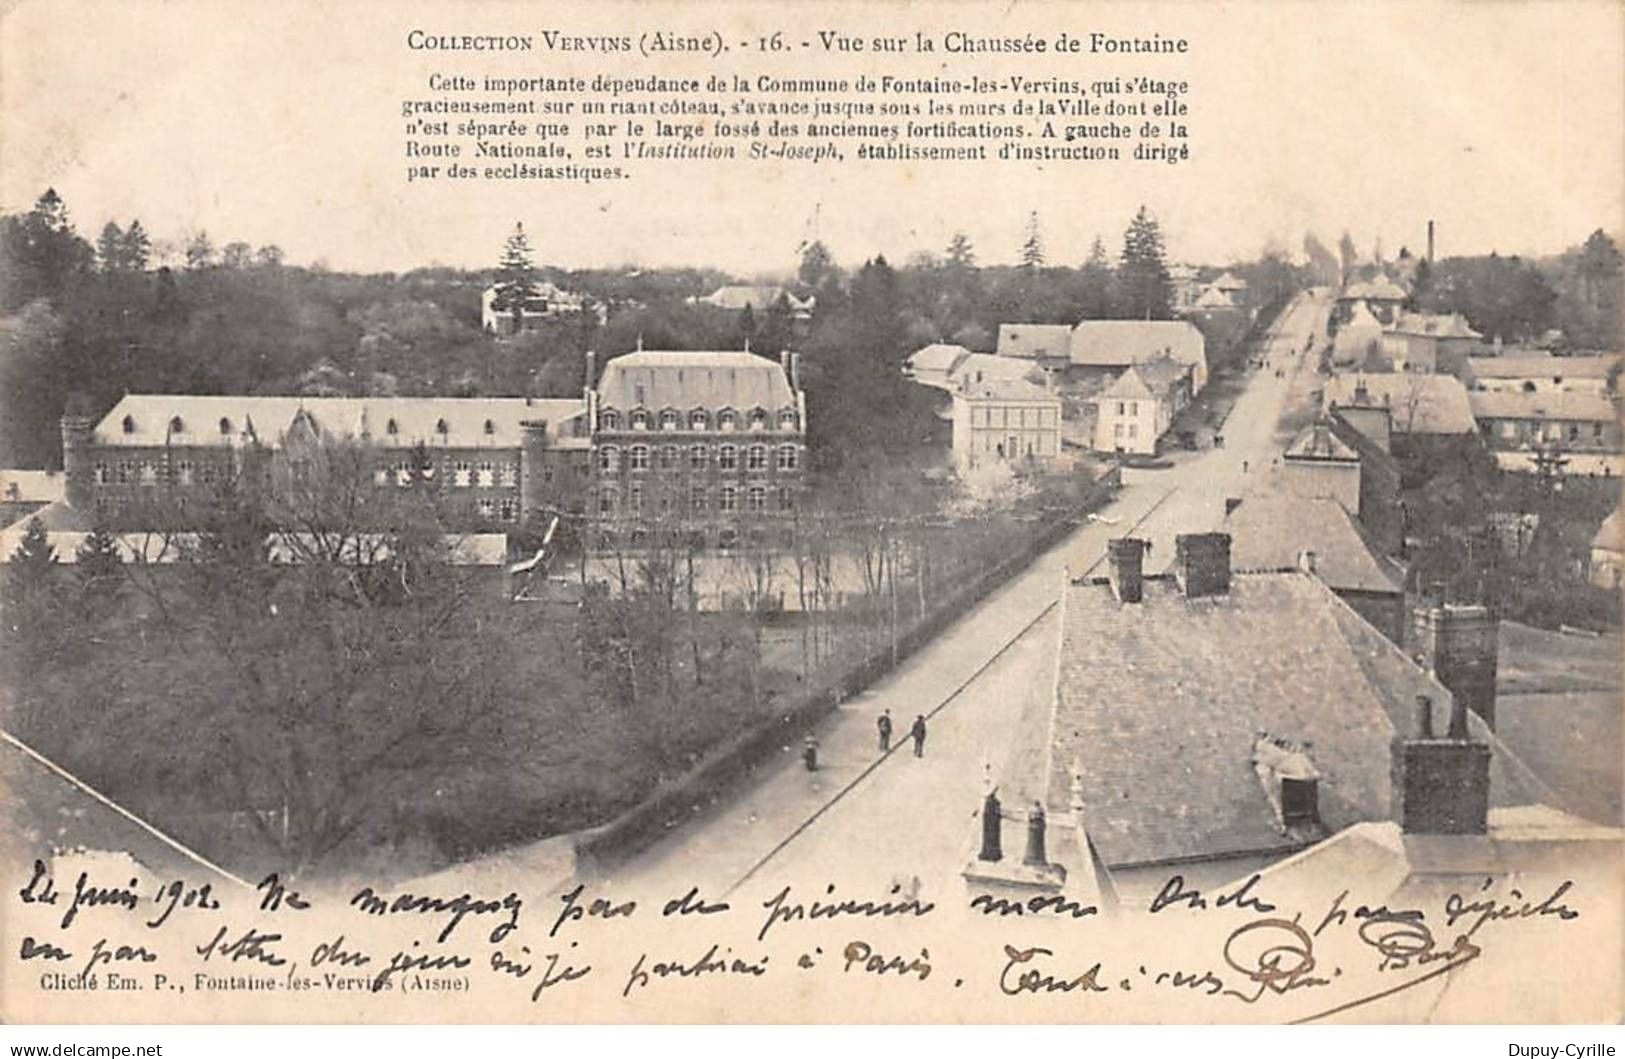 COLLECTION VERVINS (Aisne). - 16. - Vue sur la Chaussée de Fontaine
Cette importante dépendance de la Commune de Fontaine-les-Vervins, qui s'étage
gracieusement sur un riant côteau, s'avance jusque sous les murs de la Ville dont elle
n'est séparée que par le large fossé des anciennes fortifications. A gauche de la
Route Nationale, est l'Institution St-Joseph, établissement d'instruction dirigé
par des ecclésiastiques.
Juin 1902. Ne manquez pas de prévenir mon Oncle, par dépêche
ou par lettre, du jour où je partirai à Paris. Tout à vous
Cliché Em. P., Fontaine-les-Vervins (Aisne)
delcampe.net
Dupuy-Cyrille